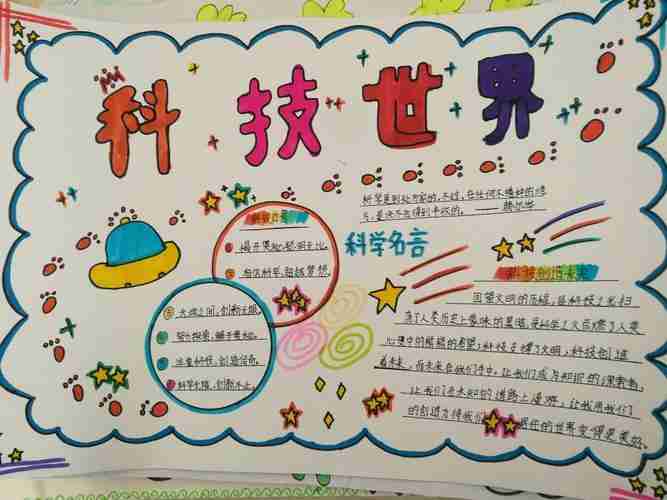 科技世界
科学是到处为家的,不过,在任何不播种的地
方,是决不会得到丰收的。——赫尔岑
科学名言
科技口号
揭开奥秘,聪明无比。
相信科学,超越梦想。
天地之间,创新无限。
努力探索,解开奥秘。
注重科技,创造传奇。
科学无限,创新不止。
科技创造未来
回望文明的历程,是科技之光扫
荡了人类历史上的蒙昧,是科学之火点燃了人类
心灵中的希望;科技支撑了文明,科技创造
着未来,而未来在我们手中。让我们成为知识的探索者,
让我们在未知的道路上漫游,让我用我们
的创造力将我们的世界变得更美好。